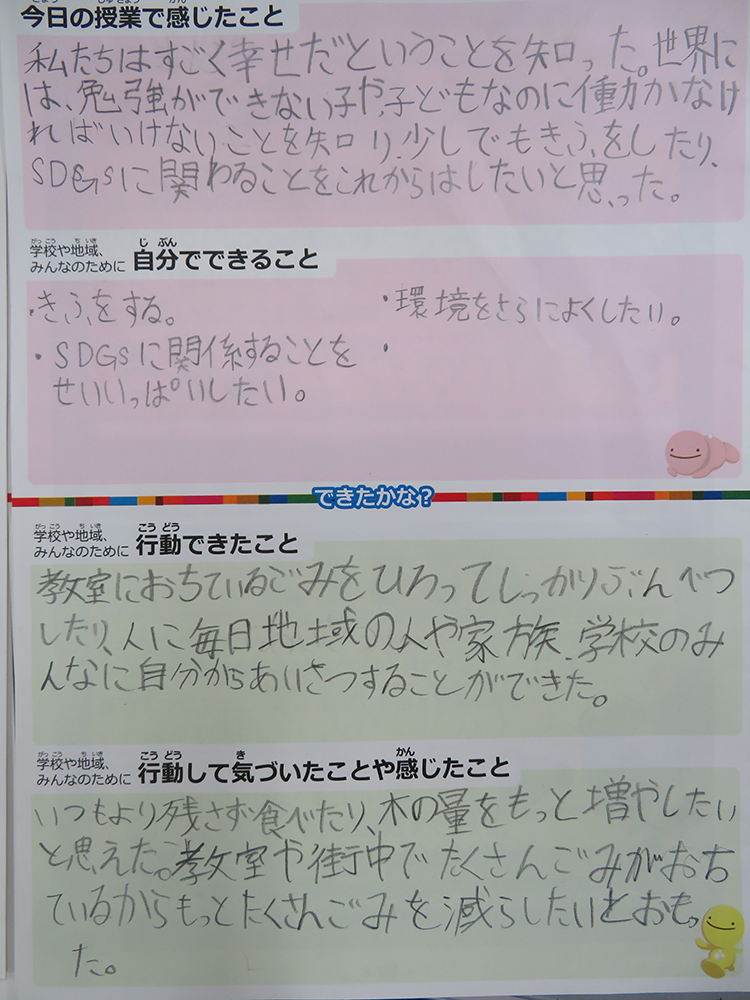 今日の授業で感じたこと
私たちはすごく幸せだということを知った。世界に
は、勉強ができない子や、子どもなのに働かなけ
ればいけないことを知り、少しでもきふをしたり、
SDGsに関わることをこれからはしたいと思った。
がっこう ちいき
学校や地域、
みんなのために
じぶん
自分でできること
・きふをする。
・SDGsに関係することを
せいいっぱいしたい。
・環境をさらによくしたい。
・
できたかな?
がっこう ちいき
学校や地域、
みんなのために
こうどう
行動できたこと
教室におちているごみをひろってしっかりぶんべつ
したり、人に毎日地域の人や家族、学校のみ
んなに自分からあいさつすることができた。
がっこう ちいき
学校や地域、
みんなのために
こうどう き かん
行動して気づいたことや感じたこと
いつもより残さず食べたり、木の量をもっと増やしたい
と思えた。教室や街中でたくさんごみがおち
ているからもっとたくさんごみを減らしたいとおもっ
た。